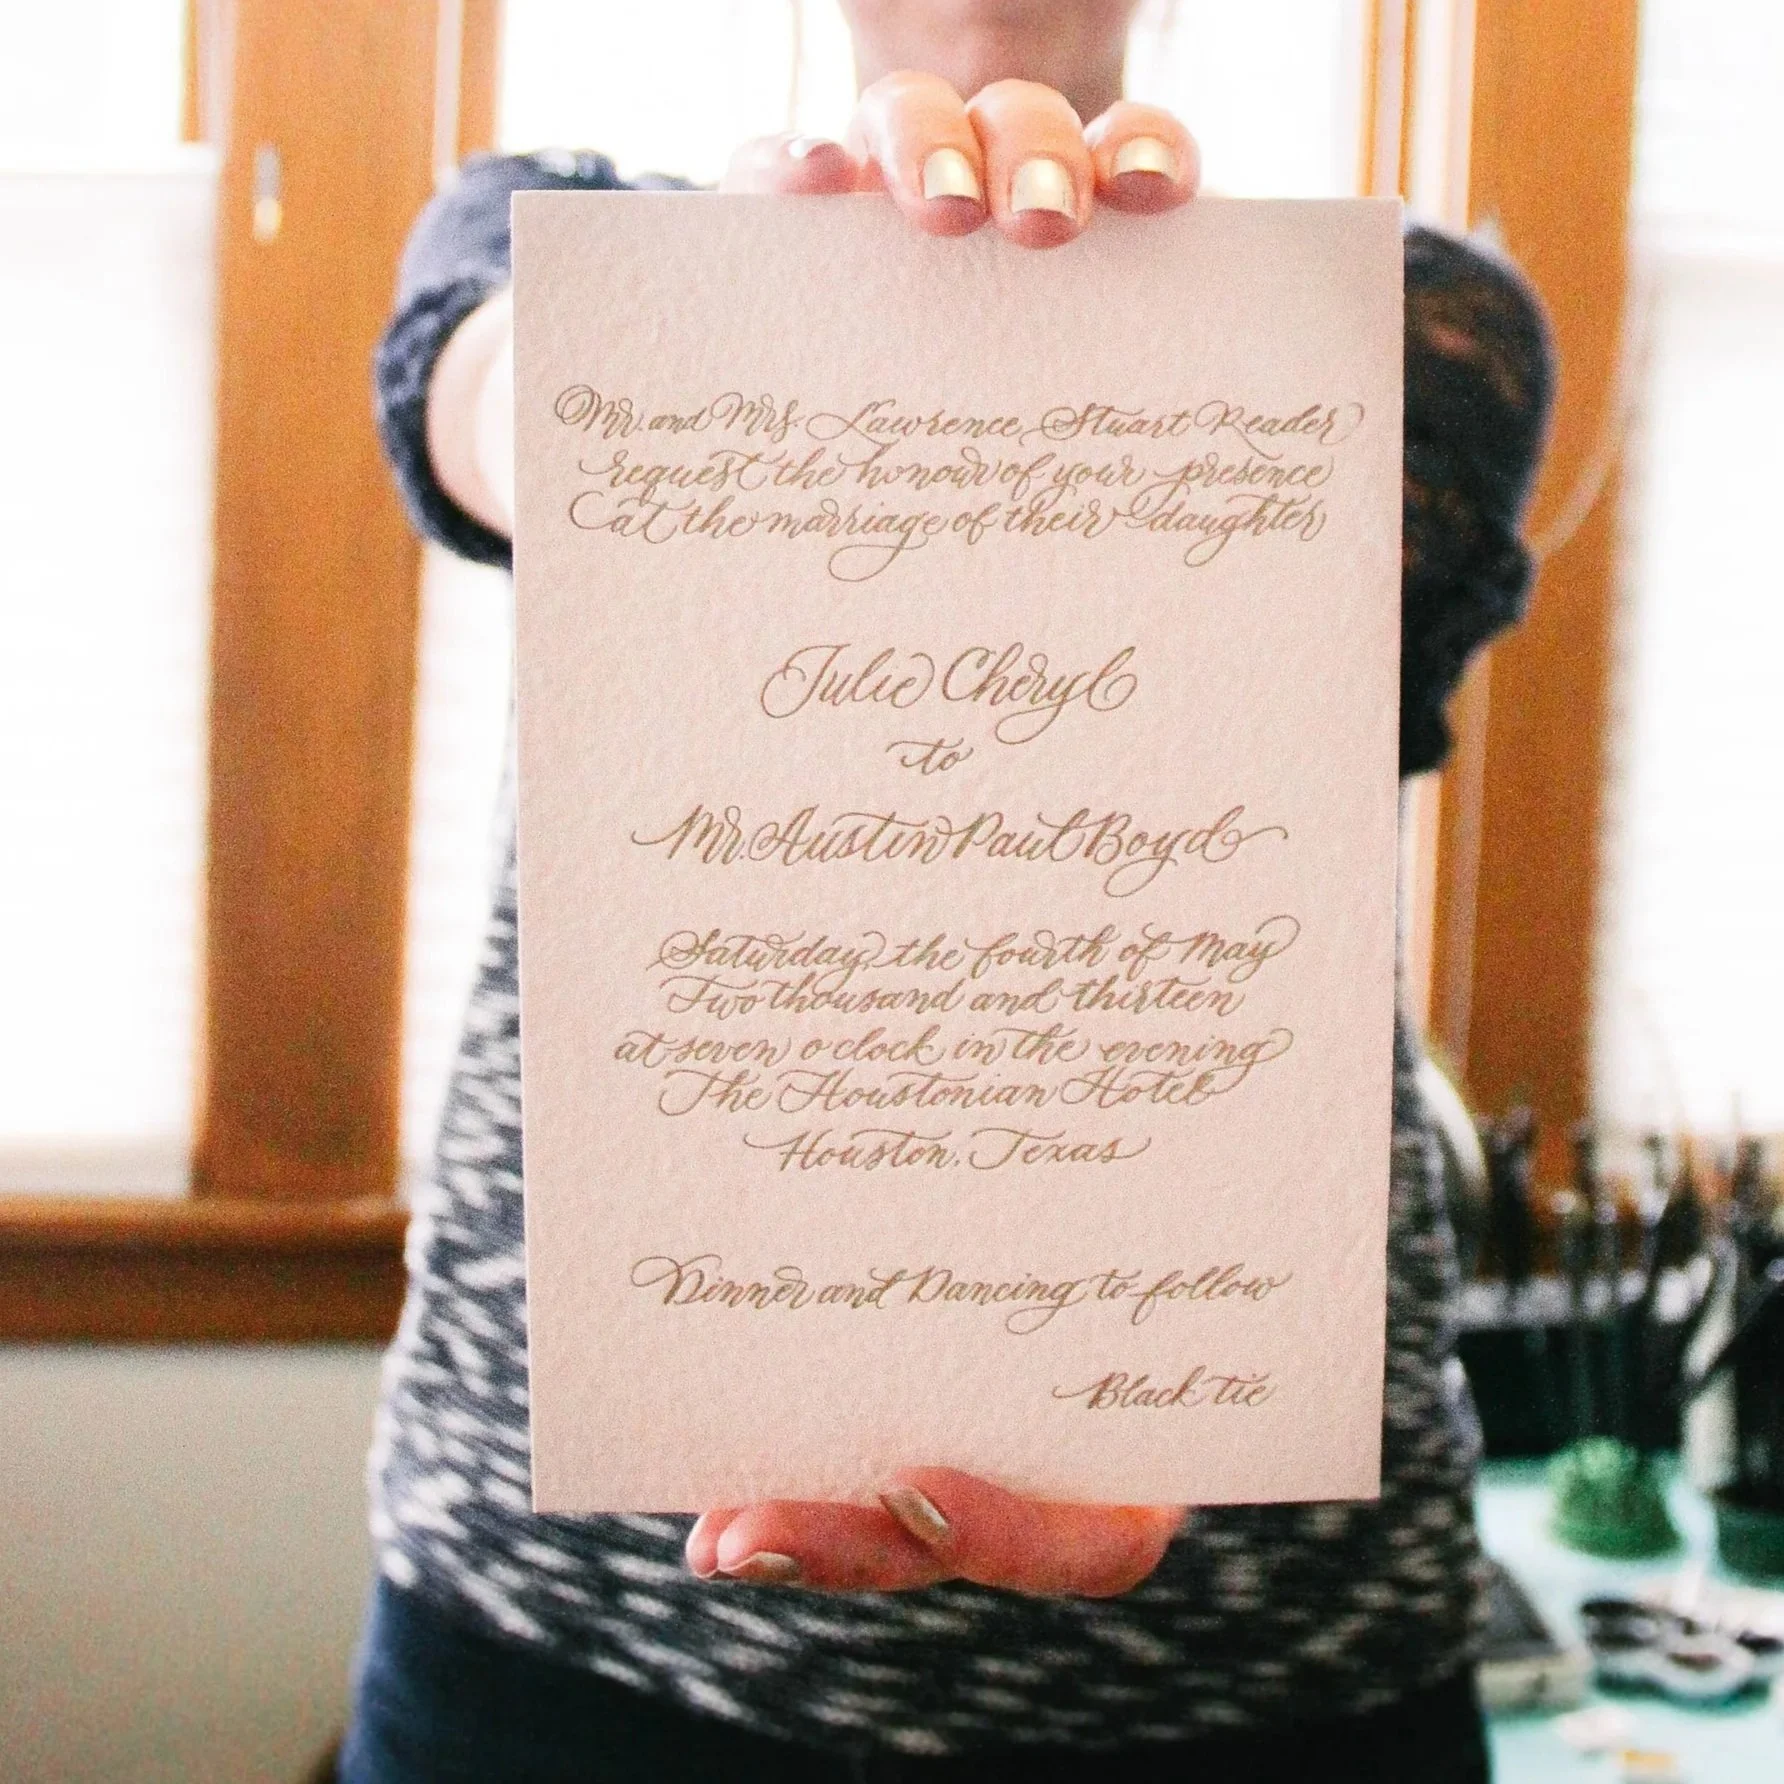 Mr. and Mrs. Lawrence Stuart Reader
request the honour of your presence
at the marriage of their daughter
Julie Cheryl
to
Mr. Austin Paul Boyd
Saturday, the fourth of May
Two thousand and thirteen
at seven o'clock in the evening
The Houstonian Hotel
Houston, Texas
Dinner and Dancing to follow
Black tie